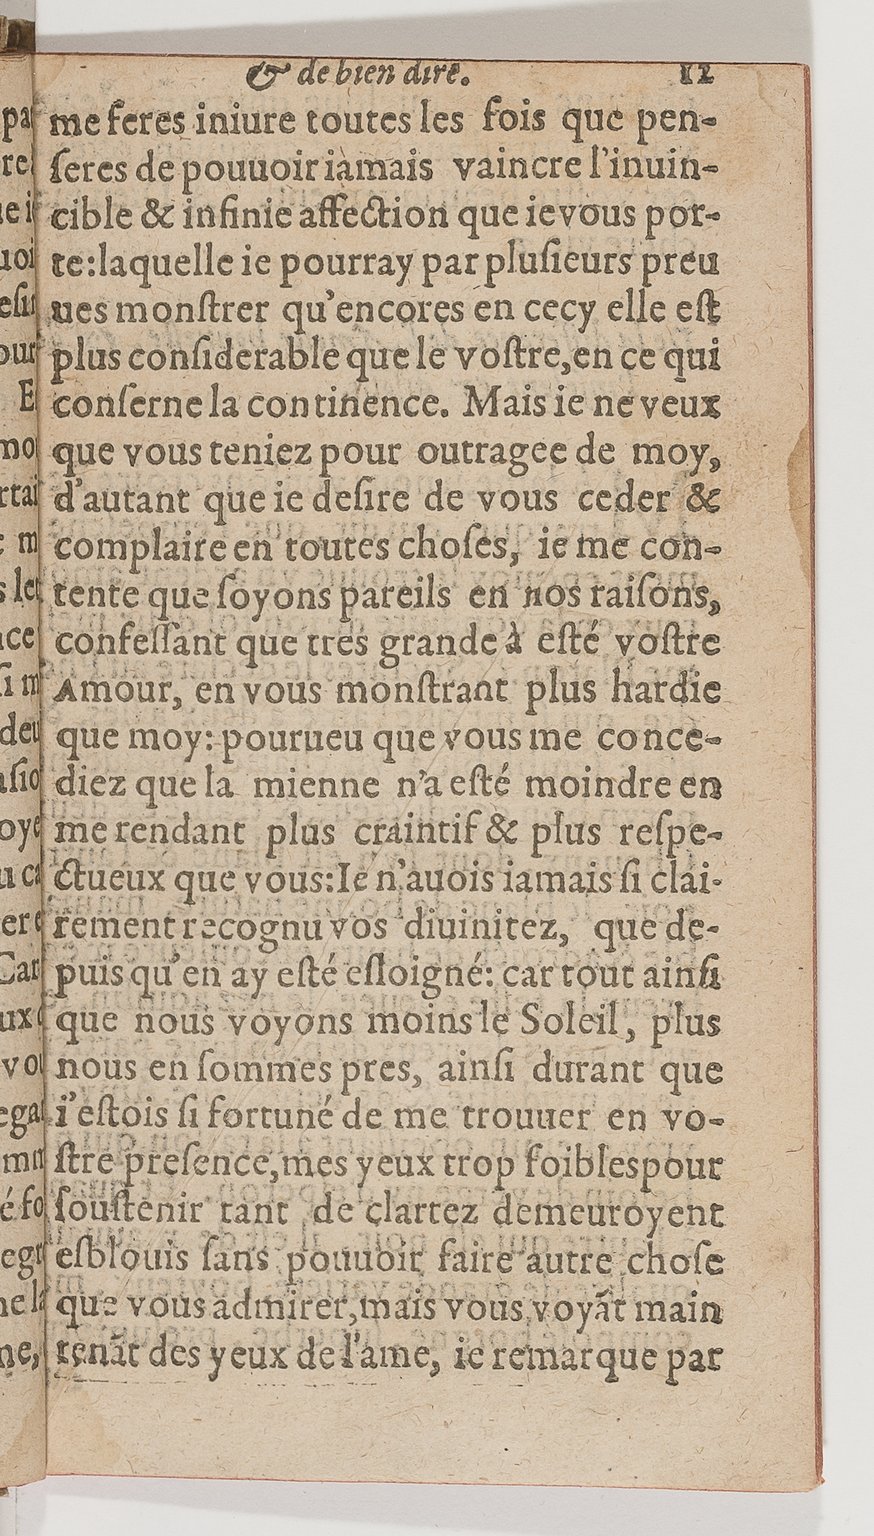 & de bien dire. 12
me feres iniure toutes les fois que pen-
ſeres de pouuoir iàmais vaincre l'inuin-
cible & infinie affection que ie vous por-
te: laquelle ie pourray par pluſieurs preu
ues monſtrer qu'encores en cecy elle eſt
plus conſiderable que le voſtre, en ce qui
conſerne la continence. Mais ie ne veux
que vous teniez pour outragee de moy,
d'autant que ie deſire de vous ceder &
complaire en toutes choſes, ie me con-
tente que ſoyons pareils en nos raiſons,
confeſſant que tres grande à eſté voſtre
Amour, en vous monſtrant plus hardie
que moy: pourueu que vous me conce-
diez que la mienne n'a eſté moindre en
me rendant plus craintif & plus reſpe-
ctueux que vous: Ie n'auois iamais ſi clai-
rement recognu vos diuinitez, que de-
puis qu'en ay eſté eſloigné: car tout ainſi
que nous voyons moins le Soleil, plus
nous en ſommes pres, ainſi durant que
i'eſtois ſi fortuné de me trouuer en vo-
ſtre preſence, mes yeux trop foibles pour
ſouſtenir tant de clartez demeuroyent
eſblouis ſans pouuoir faire autre choſe
que vous admirer, mais vous voyãt main
tenãt des yeux de l'ame, ie remarque par